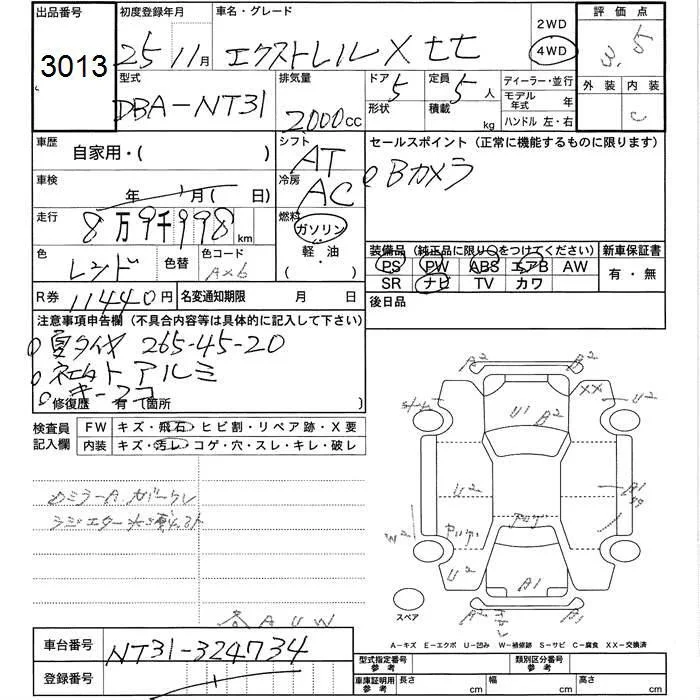 出品番号 初度登録年月 車名・グレード 評価点
3013 25 11月 エクストレイル X tt 2WD 4WD 3.5
型式 排気量 ドア 5 定員 5人 ディーラー・並行 外装 内装
DBA-NT31 2000cc 形状 積載 kg モデル年式 年 C
ハンドル 左・右
車歴 シフト セールスポイント（正常に機能するものに限ります）
自家用・( ) AT Bカメラ
車検 年 月( 日) 冷房 AC
走行 8万9千998km 燃料 ガソリン 軽・油
装備品（純正品に限り○をつけてください） 新車保証書
色 レッド 色替 色コード AX6 PS PW ABS エアB AW 有・無
SR ナビ TV カワ
R券 11440円 名変通知期限 月 日 後日品
注意事項申告欄（不具合内容等は具体的に記入して下さい）
夏タイヤ 265-45-20
アルミ
キーココ
修復歴 有（箇所 )
検査員記入欄 FW キズ・飛石・ヒビ割・リペア跡・X要
内装 キズ・汚レ・コゲ・穴・スレ・キレ・破レ
A2 A2
XX
U1 B2 U2
U2 A1
W2
U2 A1 U2
スペア
A-キズ E-エクボ U-凹み W-補修跡 S-サビ C-腐食 XX-交換済
車台番号 NT31-324734 型式指定番号 参考 類別区分番号 参考
登録番号 車庫証明用 参考 長さ cm 幅 cm 高さ cm